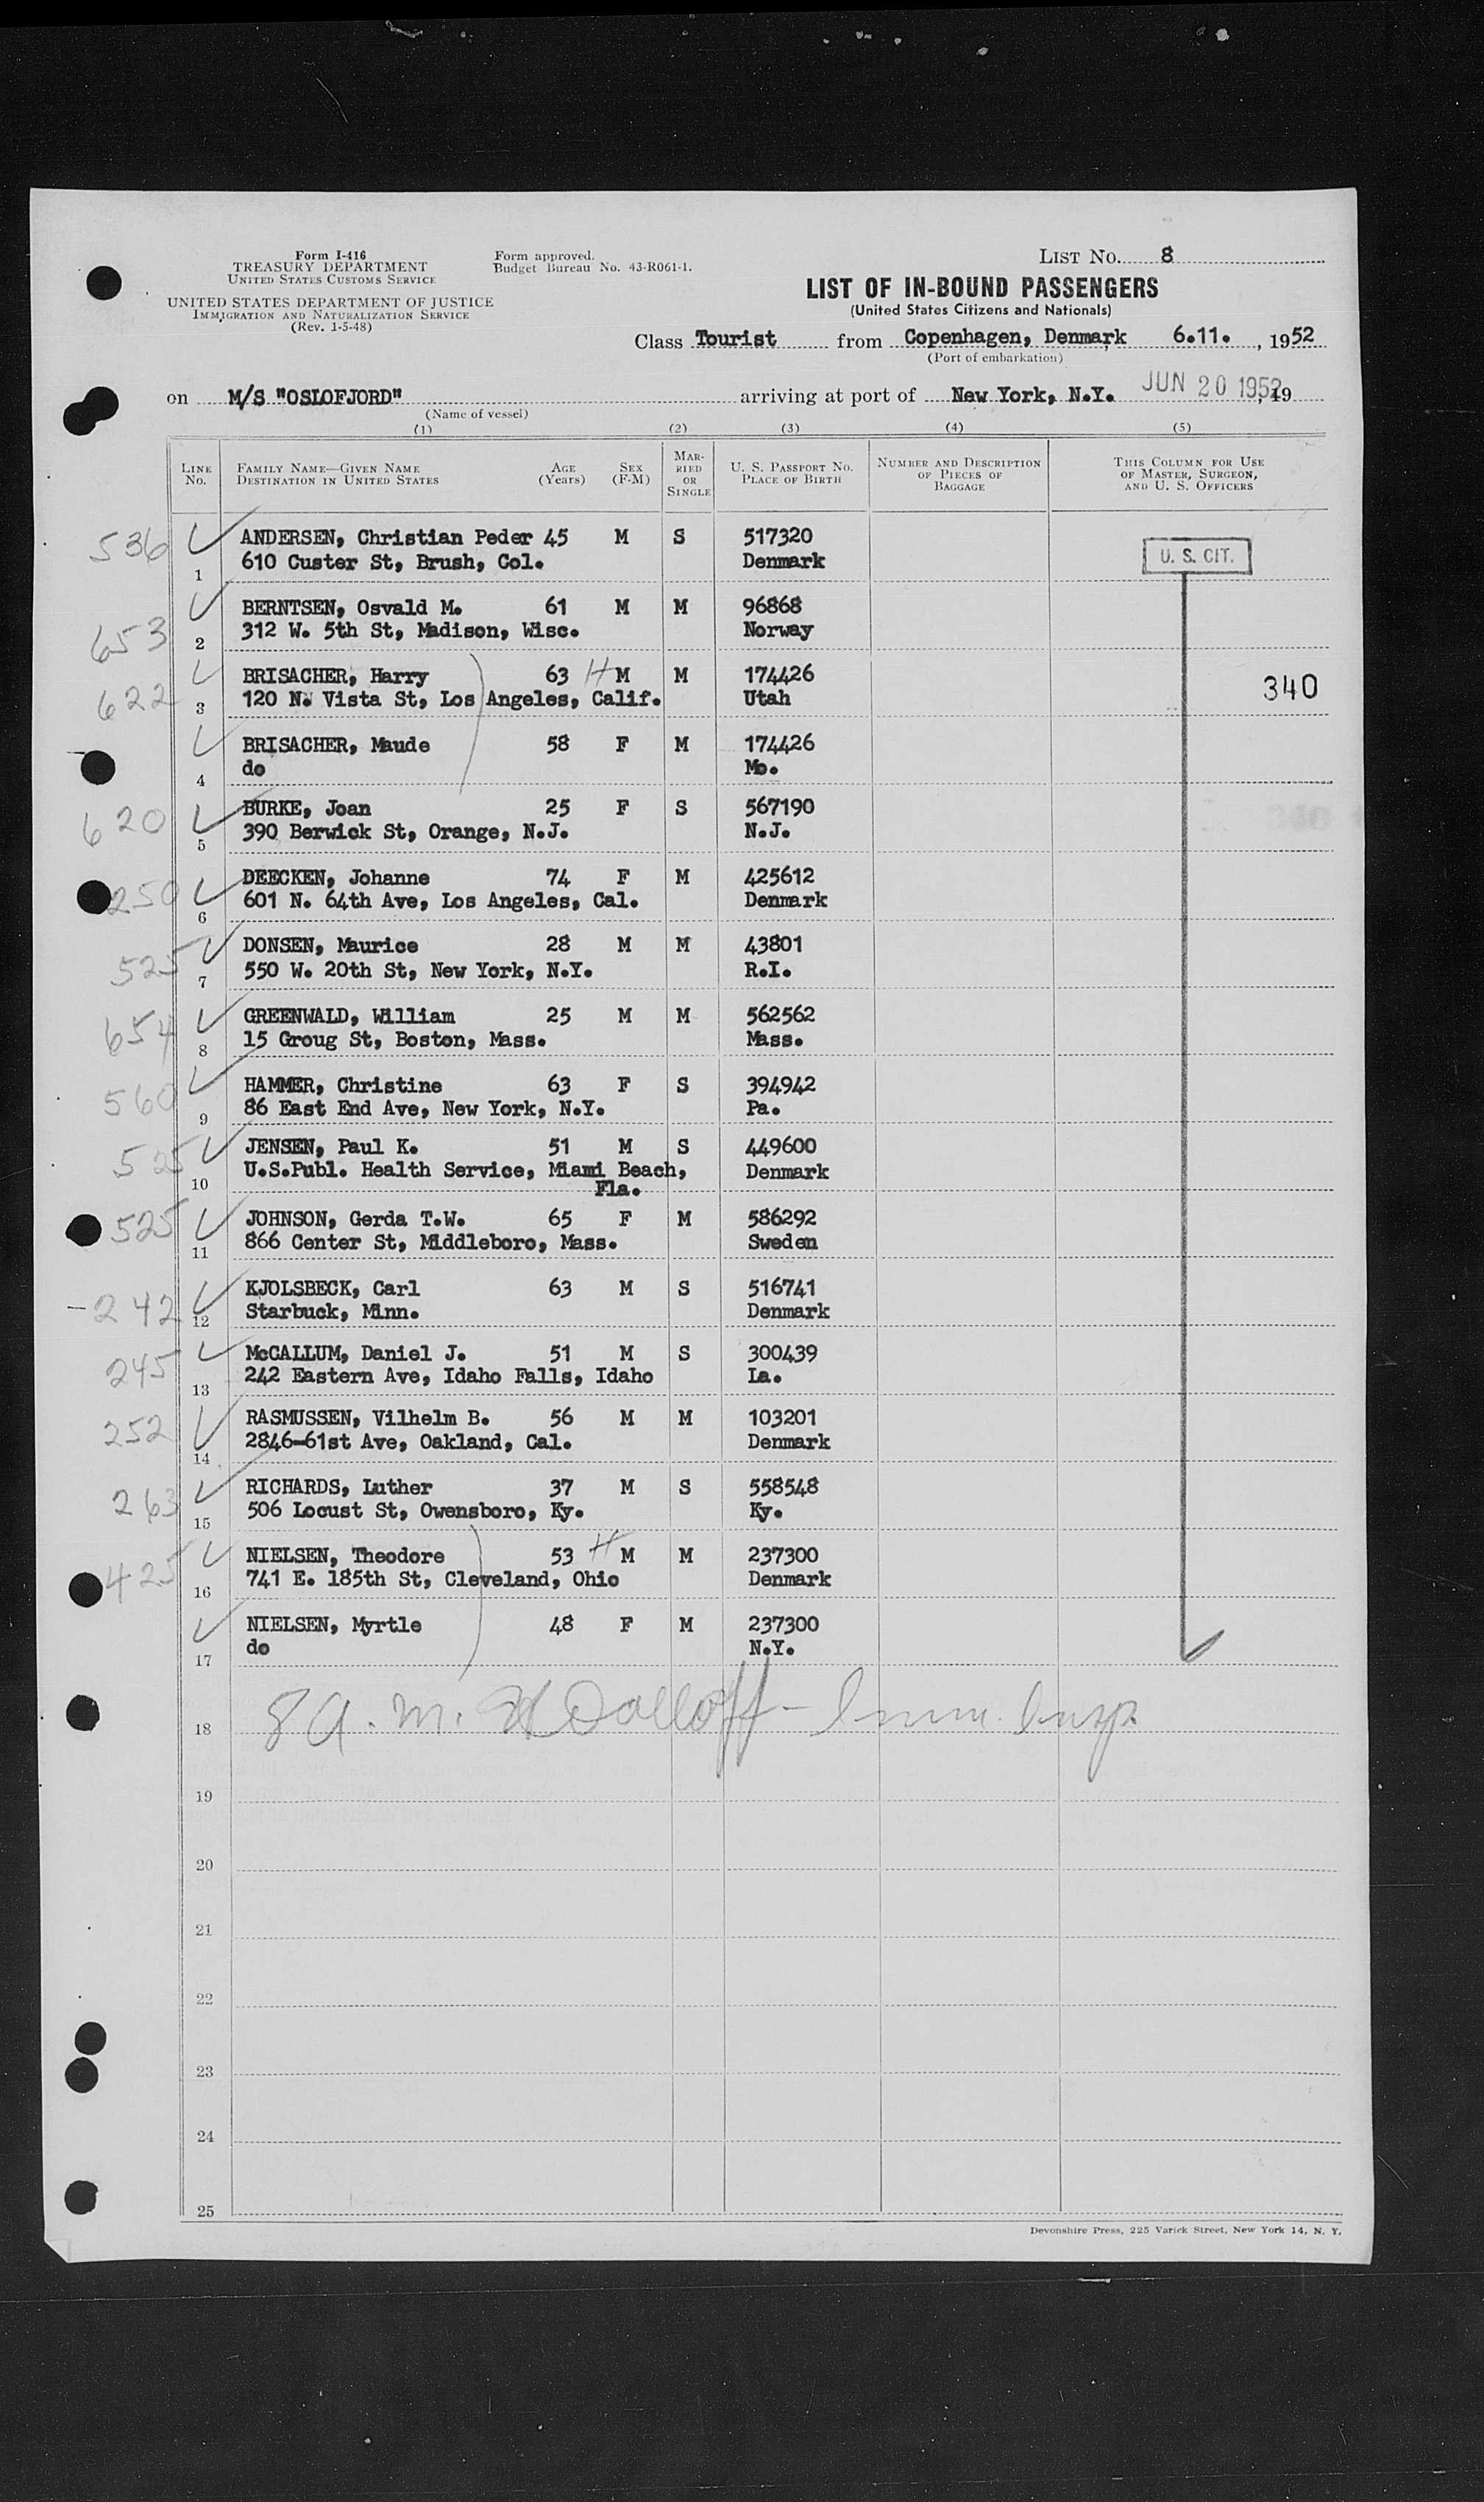 Form I-416
TREASURY DEPARTMENT
UNITED STATES CUSTOMS SERVICE
UNITED STATES DEPARTMENT OF JUSTICE
IMMIGRATION AND NATURALIZATION SERVICE
(Rev. 1-5-48)
Form approved.
Budget Bureau No. 43-R061-1.
LIST No. 8
LIST OF IN-BOUND PASSENGERS
(United States Citizens and Nationals)
Class Tourist from Copenhagen, Denmark 6.11. , 1952
(Port of embarkation)
on M/S "OSLOFJORD" arriving at port of New York, N.Y. JUN 20 1952, 19
(Name of vessel)
(1) (2) (3) (4) (5)
LINE No. FAMILY NAME—GIVEN NAME DESTINATION IN UNITED STATES AGE (Years) SEX (F-M) MARRIED OR SINGLE U. S. PASSPORT No. PLACE OF BIRTH NUMBER AND DESCRIPTION OF PIECES OF BAGGAGE THIS COLUMN FOR USE OF MASTER, SURGEON, AND U. S. OFFICERS
536 ANDERSEN, Christian Peder 45 M S 517320
1 610 Custer St, Brush, Col. Denmark U. S. CIT.
BERNTSEN, Osvald M. 61 M M 96868
653 2 312 W. 5th St, Madison, Wisc. Norway
BRISACHER, Harry 63 H M M 174426
622 3 120 N. Vista St, Los Angeles, Calif. Utah 340
BRISACHER, Maude 58 F M 174426
4 do Mo.
620 BURKE, Joan 25 F S 567190
5 390 Berwick St, Orange, N.J. N.J.
250 DEECKEN, Johanne 74 F M 425612
6 601 N. 64th Ave, Los Angeles, Cal. Denmark
DONSEN, Maurice 28 M M 43801
525 7 550 W. 20th St, New York, N.Y. R.I.
654 GREENWALD, William 25 M M 562562
8 15 Groug St, Boston, Mass. Mass.
560 HAMMER, Christine 63 F S 394942
9 86 East End Ave, New York, N.Y. Pa.
525 JENSEN, Paul K. 51 M S 449600
10 U.S.Publ. Health Service, Miami Beach, Denmark
Fla.
525 JOHNSON, Gerda T.W. 65 F M 586292
11 866 Center St, Middleboro, Mass. Sweden
KJOLSBECK, Carl 63 M S 516741
-242 12 Starbuck, Minn. Denmark
245 McCALLUM, Daniel J. 51 M S 300439
13 242 Eastern Ave, Idaho Falls, Idaho La.
252 RASMUSSEN, Vilhelm B. 56 M M 103201
14 2846-61st Ave, Oakland, Cal. Denmark
263 RICHARDS, Luther 37 M S 558548
15 506 Locust St, Owensboro, Ky. Ky.
425 NIELSEN, Theodore 53 H M M 237300
16 741 E. 185th St, Cleveland, Ohio Denmark
NIELSEN, Myrtle 48 F M 237300
17 do N.Y.
18 8 A.M. Imm. Insp.
19
20
21
22
23
24
25
Devonshire Press, 225 Varick Street, New York 14, N. Y.